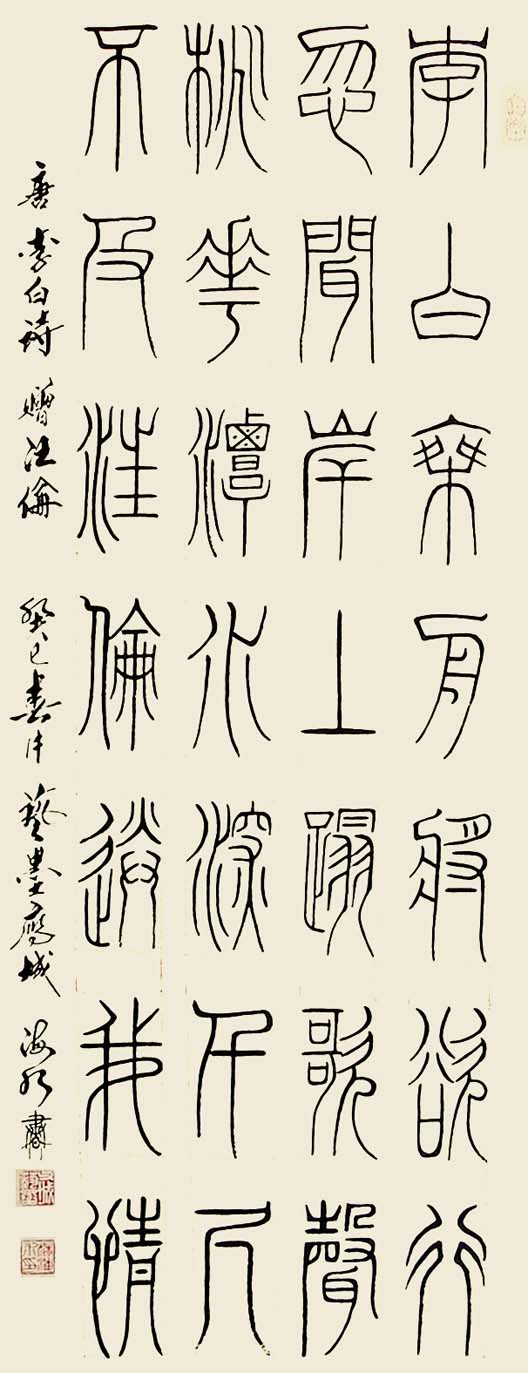 李白乘舟將欲行
忽聞岸上蹋歌聲
桃花潭水深千尺
不及汪倫送我情
唐 李白詩 贈汪倫 癸巳 藝墨 城 海 書